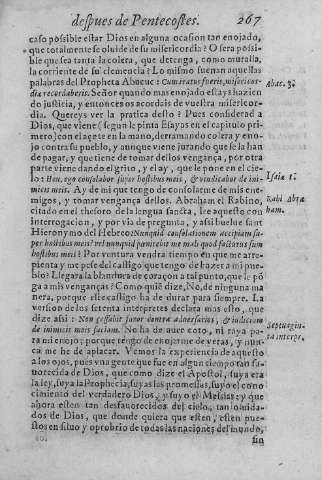 despues de Pentecostes. 267
caso possible estar Dios en alguna ocasion tan enojado,
que totalmente se oluide de su misericordia? O sera possi-
ble que sea tanta la colera, que detenga, como muralla,
la corriente de su clemencia? Lo mismo suenan aquellas
palabras del Propheta Abacuc: Cum iratus fueris, misericor-
diæ recordaberis. Señor quando mas enojado estays hazien
do justicia, y entonces os acordais de vuestra misericor-
dia. Quereys ver la pratica desto? Pues considerad a
Dios, que viene (segun le pinta Esayas en el capitulo pri-
mero) con el açote en la mano, derramando colera y eno-
jo contra su pueblo, y aunque viene jurando que se la han
de pagar, y que tiene de tomar dellos vengança, por otra
parte viene dando el grito, y el ay, que le pone en el cie-
lo: Heu, ego consolabor super hostibus meis, & vindicabor de ini-
micis meis. Ay de mi que tengo de consolarme de mis ene-
migos, y tomar vengança dellos. Abraham el Rabino,
citado en el thesoro de la lengua sancta, lee aquesto con
interrogacion, y por via de pregunta, y assi buelue sant
Hieronymo del Hebreo: Nunquid consolationem accipiam su-
per hostibus meis? vel nunquid pœnitebit me mali quod facturus sum
hostibus meis? Por ventura vendra tiempo en que me arre-
pienta y me pese del castigo que tengo de hazer a mi pue-
blo? Llegara la blandura de coraçon a tal punto, que le pō
ga a mis venganças? Como quiē dize, No, de ninguna ma
nera, porque esse castigo ha de durar para siempre. La
version de los setenta interpretes declara mas esto, que
dize assi: Non cessabit furor contra aduersarios, & iudicium
de inimicis meis faciam. No ha de auer coto, ni raya pa-
ra mi enojo; porque tengo de enojarme de veras, y nun-
ca me he de aplacar. Vemos la experiencia de aquesto
a los ojos, pues vna gente que fue en algun tiempo tan fa-
uorecida de Dios, que como dize el Apostol, suya era
la ley, suya la Prophecia, suyas las promessas, suyo el cono
cimiento del verdadero Dios, y suyo el Messias: y que
ahora esten tan desfauorecidos del cielo, tan oluida-
dos de Dios, que donde quiera que esten, esten pues-
tos en siluo y oprobrio de todas las naciones del mundo,
sin
Abac. 3.
Isaiæ 1.
Rabi Abra
ham.
Septuagin-
ta interpr.